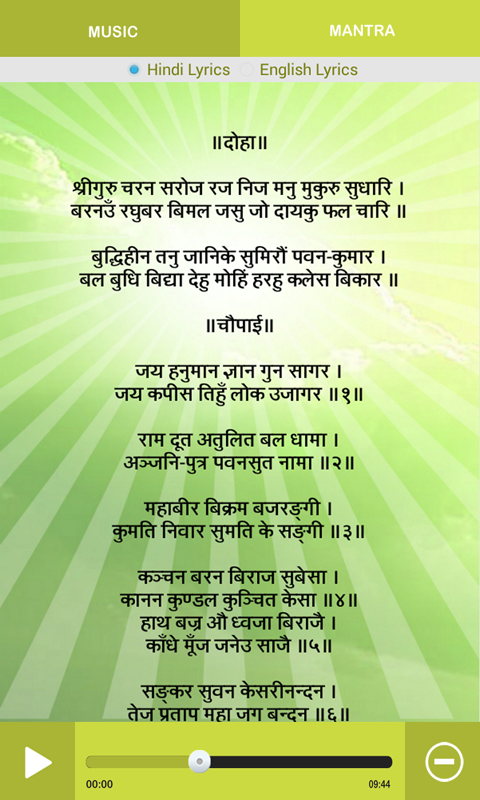 MUSIC
MANTRA
Hindi Lyrics
English Lyrics
॥दोहा॥
श्रीगुरु चरन सरोज रज निज मनु मुकुरु सुधारि ।
बरनउँ रघुबर बिमल जसु जो दायकु फल चारि ॥
बुद्धिहीन तनु जानिके सुमिरौं पवन-कुमार ।
बल बुधि बिद्या देहु मोहिं हरहु कलेस बिकार ॥
॥चौपाई॥
जय हनुमान ज्ञान गुन सागर ।
जय कपीस तिहुँ लोक उजागर ॥१॥
राम दूत अतुलित बल धामा ।
अञ्जनि-पुत्र पवनसुत नामा ॥२॥
महाबीर बिक्रम बजरङ्गी ।
कुमति निवार सुमति के सङ्गी ॥३॥
कञ्चन बरन बिराज सुबेसा ।
कानन कुण्डल कुञ्चित केसा ॥४॥
हाथ बज्र औ ध्वजा बिराजै ।
काँधे मूँज जनेउ साजै ॥५॥
सङ्कर सुवन केसरीनन्दन ।
तेज प्रताप महा जग बन्दन ॥६॥
00:00
09:44